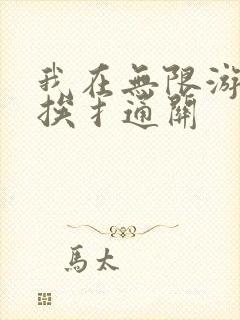 我在無限游
挨才通關
馬太